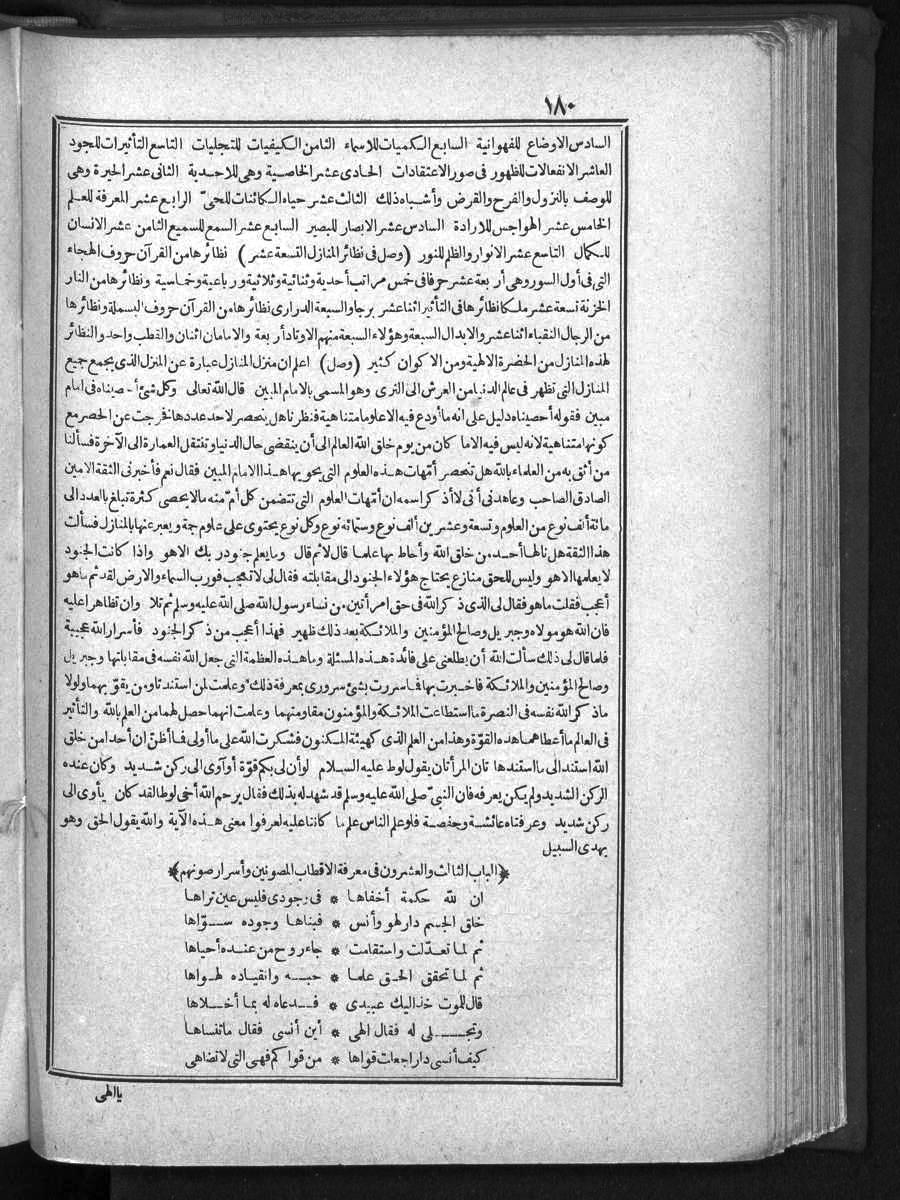 ١٨٠
السادس الاوضاع للفهوانية السابع الكميات للاسماء الثامن الكيفيات للتجليات التاسع التأثيرات للجود
العاشر الانفعالات للظهور فى صور الاعتقادات الحادى عشر الخاصية وهى للاحدية الثانى عشر الحيرة وهى
للوصف بالنزول والفرح والقرض وأشباه ذلك الثالث عشر حياه الكائنات للحىّ الرابع عشر المعرفة للعلم
الخامس عشر الهواجس للارادة السادس عشر الابصار للبصير السابع عشر السمع للسميع الثامن عشر الانسان
للكمال التاسع عشر الانوار والظلم للنور (وصل فى نظائر المنازل التسعة عشر) نظائرها من القرآن حروف الهجاء
التى فى أول السور وهى أربعة عشر حرفا فى خمس مراتب أحدية وثنائية وثلاثية ورباعية وخماسية ونظائرها من النار
الخزنة تسعة عشر ملكا نظائرها فى التأثير اثنا عشر برجا والسبعة الدرارى نظائرها من القرآن حروف البسملة ونظائرها
من الرجال النقباء اثنا عشر والابدال السبعة وهؤلاء السبعة منهم الاوتاد أربعة والامامان اثنان والقطب واحد والنظائر
لهذه المنازل من الحضرة الالهية ومن الاكوان كثير (وصل) اعلم ان منزل المنازل عبارة عن المنزل الذى يجمع جميع
المنازل التى تظهر فى عالم الدنيا من العرش الى الثرى وهو المسمى بالامام المبين قال الله تعالى وكل شئ أحصيناه فى امام
مبين فقوله أحصيناه دليل على انه ما أودع فيه الا علوما متناهية فنظرنا هل ينحصر لاحد عددها فخرجت عن الحصر مع
كونها متناهية لانه ليس فيه الا ما كان من يوم خلق الله العالم الى أن ينقضى حال الدنيا وتنتقل العمارة الى الآخرة فسألنا
من أثق به من العلماء بالله هل تنحصر أمّهات هذه العلوم التى يحويها هذا الامام المبين فقال نعم فأخبرنى الثقة الامين
الصادق الصاحب وعاهدنى أنى لا أذكر اسمه ان أمّهات العلوم التى تتضمن كل أمّ منه ما لا يحصى كثرة تبلغ بالعدد الى
مائة ألف نوع من العلوم وتسعة وعشرين ألف نوع وستمائة نوع وكل نوع يحتوى على علوم جمة ويعبر عنها بالمنازل فسألت
هذا الثقة هل نالها أحد من خلق الله وأحاط بها علما قال لا ثم قال وما يعلم جنود ربك الا هو واذا كانت الجنود
لا يعلمها الا هو وليس للحق منازع يحتاج هؤلاء الجنود الى مقابلته فقال لى لا تعجب فورب السماء والارض لقد ثم ما هو
أعجب فقلت ما هو فقال لى الذى ذكر الله فى حق امرأتين من نساء رسول الله صلى الله عليه وسلم ثم تلا وان تظاهرا عليه
فان الله هو مولاه وجبريل وصالح المؤمنين والملائكة بعد ذلك ظهير فهذا أعجب من ذكر الجنود فأسرار الله عجيبة
فلما قال لى ذلك سألت الله أن يطلعنى على فائدة هذه المسئلة وما هذه العظمة التى جعل الله نفسه فى مقابلتها وجبريل
وصالح المؤمنين والملائكة فاخبرت بها فما سررت بشئ سرورى بمعرفة ذلك وعلمت لمن استندتا ومن يقوّيهما ولولا
ماذكر الله نفسه فى النصرة ما استطاعت الملائكة والمؤمنون مقاومتهما وعلمت انهما حصل لهما من العلم بالله والتأثير
فى العالم ما أعطاهما هذه القوّة وهذا من العلم الذى كهيئة المكنون فشكرت الله على ما أولى فما أظنّ ان أحدا من خلق
الله استند الى ما استندها تان المرأتان يقول لوط عليه السلام لو أن لى بكم قوّة أو آوى الى ركن شديد وكان عنده
الركن الشديد ولم يكن يعرفه فان النبىّ صلى الله عليه وسلم قد شهد له بذلك فقال يرحم الله أخى لوطا لقد كان يأوى الى
ركن شديد وعرفتاه عائشة وحفصة فلو علم الناس علم ما كانتا عليه لعرفوا معنى هذه الآية والله يقول الحق وهو
يهدى السبيل
﴿الباب الثالث والعشرون فى معرفة الاقطاب المصونين وأسرار صونهم﴾
ان لله حكمة أخفاها * فى وجودى فليس عين تراها
خلق الجسم دار لهو وأنس * فبناها وجوده سوّاها
ثم لما تعدّلت واستقامت * جاء روح من عنده أحياها
ثم لما تحقق الحق علما * حبه وانقياده لهواها
قال للموت خذ اليك عبيدى * فدعاه له بما أخلاها
وتجلى له فقال الهى * أين أنسى فقال ما تنساها
كيف أنسى دارا جعلت قواها * من قواكم فهى التى لا تضاهى
يا الهى